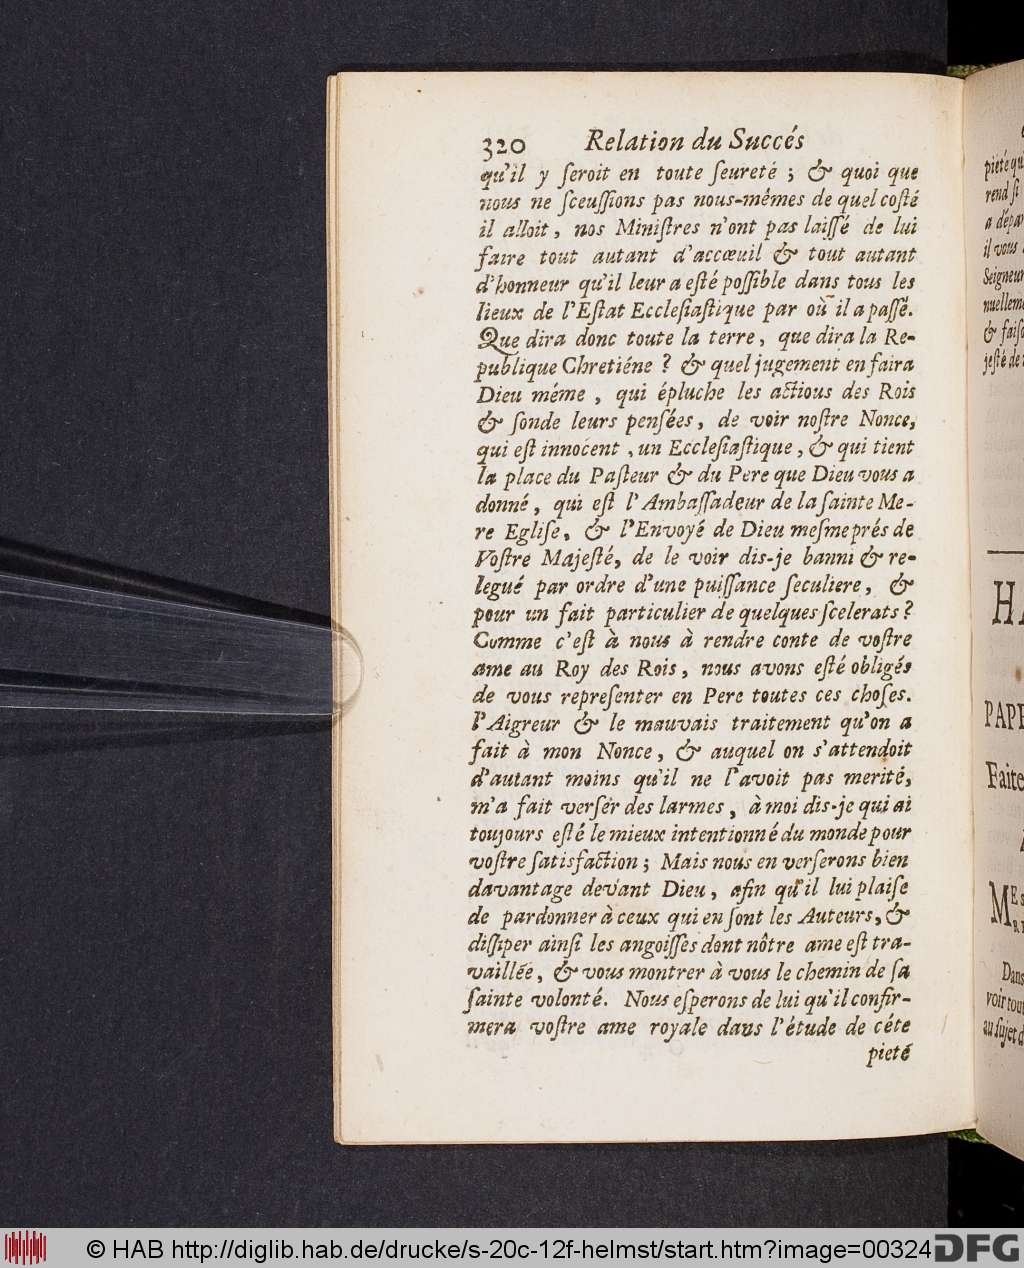 320 Relation du Succés
qu'il y ſeroit en toute ſeureté ; & quoi que
nous ne ſceuſſions pas nous-mêmes de quel coſté
il alloit, nos Miniſtres n'ont pas laiſſé de lui
faire tout autant d'accœuil & tout autant
d'honneur qu'il leur a eſté poſſible dans tous les
lieux de l'Eſtat Eccleſiaſtique par où il a paſſé.
Que dira donc toute la terre, que dira la Re-
publique Chretiéne ? & quel jugement en faira
Dieu méme, qui épluche les actious des Rois
& ſonde leurs penſées, de voir noſtre Nonce,
qui eſt innocent, un Eccleſiaſtique, & qui tient
la place du Paſteur & du Pere que Dieu vous a
donné, qui eſt l'Ambaſſadeur de la ſainte Me-
re Egliſe, & l'Envoyé de Dieu meſme prés de
Voſtre Majeſté, de le voir dis-je banni & re-
legué par ordre d'une puiſſance ſeculiere, &
pour un fait particulier de quelques ſcelerats ?
Comme c'eſt à nous à rendre conte de voſtre
ame au Roy des Rois, nous avons eſté obligés
de vous repreſenter en Pere toutes ces choſes.
l'Aigreur & le mauvais traitement qu'on a
fait à mon Nonce, & auquel on s'attendoit
d'autant moins qu'il ne l'avoit pas merité,
m'a fait verſer des larmes, à moi dis-je qui ai
toujours eſté le mieux intentionné du monde pour
voſtre ſatisfaction ; Mais nous en verſerons bien
davantage devant Dieu, afin qu'il lui plaiſe
de pardonner à ceux qui en ſont les Auteurs, &
diſſiper ainſi les angoiſſes dont nôtre ame eſt tra-
vaillée, & vous montrer à vous le chemin de ſa
ſainte volonté. Nous eſperons de lui qu'il confir-
mera voſtre ame royale daus l'étude de céte
pieté
pieté qu
rend ſi
a dépa
il vous
Seigneur
nuelleme
& faiſo
jeſté de
PAPE
Faite
Dans
voir tout
au ſujet d
© HAB http://diglib.hab.de/drucke/s-20c-12f-helmst/start.htm?image=00324
DFG